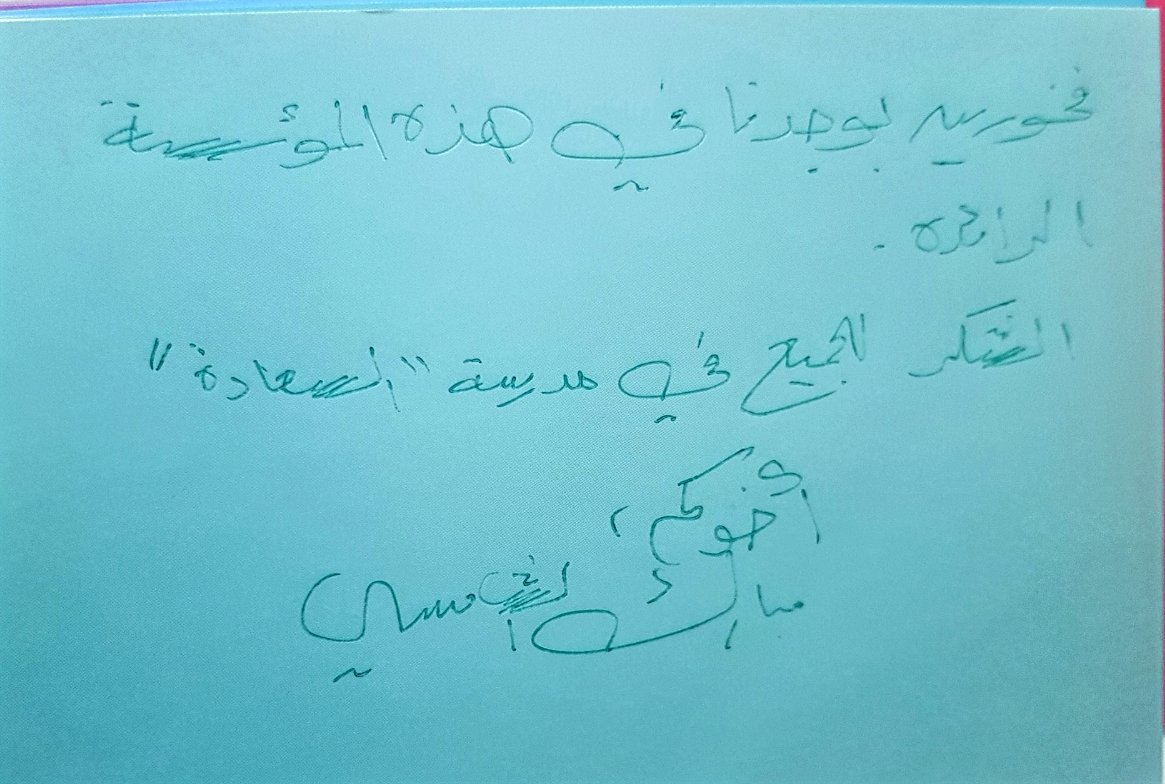 فخورين بوجدنا في هذه المؤسسة
الرائدة.
الشكر لجميع في مدرسة "السعادة"
أخوكم،
مبارك الخامسي